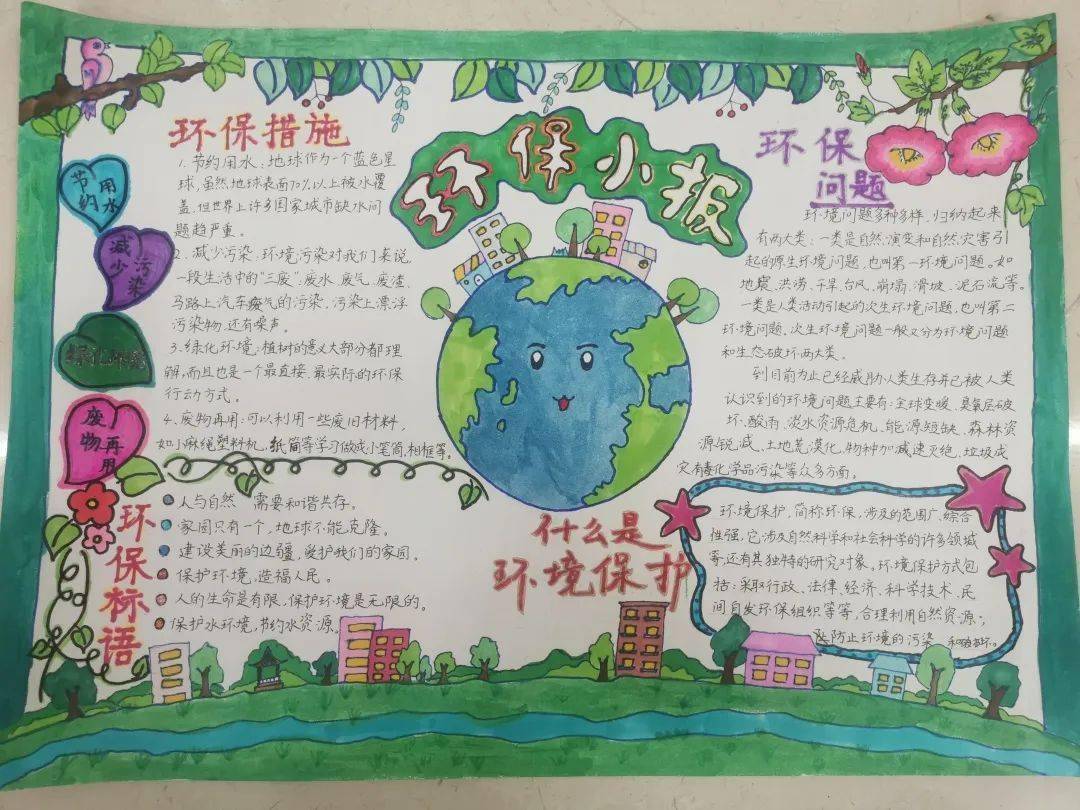 环保小报
环保措施
1.节约用水:地球作为一个蓝色星
球,虽然地球表面70%以上被水覆
盖,但世界上许多国家城市缺水问
题趋严重。
2.减少污染:环境污染对我们来说,
一段生活中的“三废”,废水、废气、废渣、
马路上汽车废气的污染,污染上漂浮
污染物,还有噪声。
3.绿化环境:植树的意义大部分都理
解,而且也是一个最直接、最实际的环保
行动方式。
4.废物再用:可以利用一些废旧材料,
如小麻绳塑料机,纸筒等学习做成小笔筒,相框等。
节约用水
减少污染
绿化环境
废物再用
环保标语
人与自然 需要和谐共存。
家园只有一个,地球不能克隆。
建设美丽的边疆,爱护我们的家园。
保护环境,造福人民。
人的生命是有限,保护环境是无限的。
保护水环境,节约水资源。
环保
问题
环境问题多种多样,归纳起来
有两大类:一类是自然演变和自然灾害引
起的原生环境问题,也叫第一环境问题。如
地震、洪涝、干旱、台风、崩塌、滑坡、泥石流等。
一类是人类活动引起的次生环境问题,也叫第二
环境问题,次生环境问题一般又分为环境问题
和生态破坏两大类。
到目前为止已经威胁人类生存并已被人类
认识到的环境问题主要有:全球变暖、臭氧层破
坏、酸雨、淡水资源危机、能源短缺、森林资
源锐减、土地荒漠化、物种加减速灭绝、垃圾成
灾、有毒化学品污染等众多方面。
什么是
环境保护
环境保护,简称环保,涉及的范围广、综合
性强,它涉及自然科学和社会科学的许多领域
等,还有其独特的研究对象。环境保护方式包
括:采取行政、法律、经济、科学技术、民
间自发环保组织等等,合理利用自然资源,
防止环境的污染和破坏。